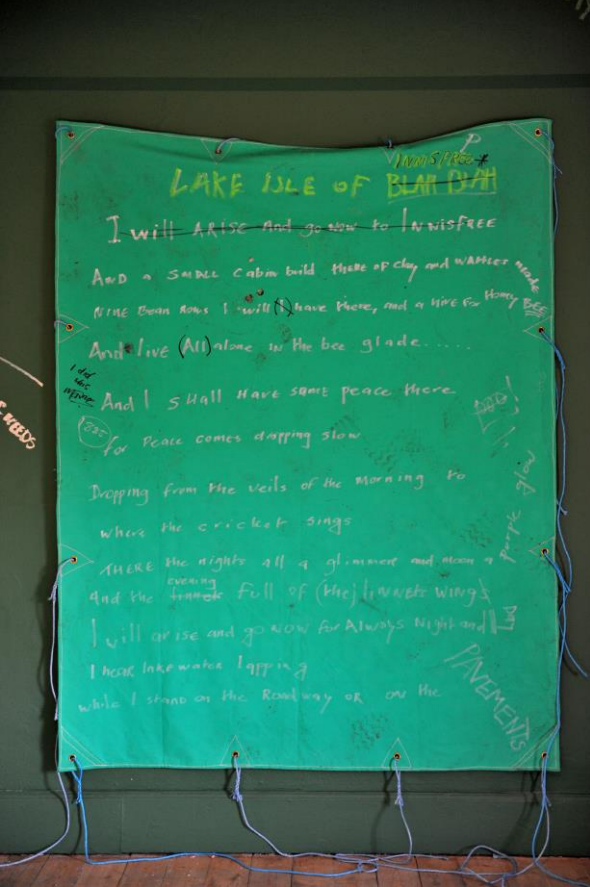 P
INNISFREE*
LAKE ISLE OF BLAH BLAH
I will ARISE and go now to INNISFREE
AND a SMALL Cabin build THERE OF Clay and WATTLES made
NINE Bean Rows I will (I) have there, and a HIVE FOR Honey BEE
And live (All) alone in the bee glade.....
And I SHall HAVE some peace there
for Peace comes dropping slow
Dropping from the veils of the Morning to
where the cricket sings
THERE the nights all a glimmer and noon a
purple glow
evening
and the linnets full of (the) linnets wings
I will arise and go now for Always Night and
DAY
I hear lake water lapping
while I stand on the Roadway or on the
PAVEMENTS
I did
this
NEEDS